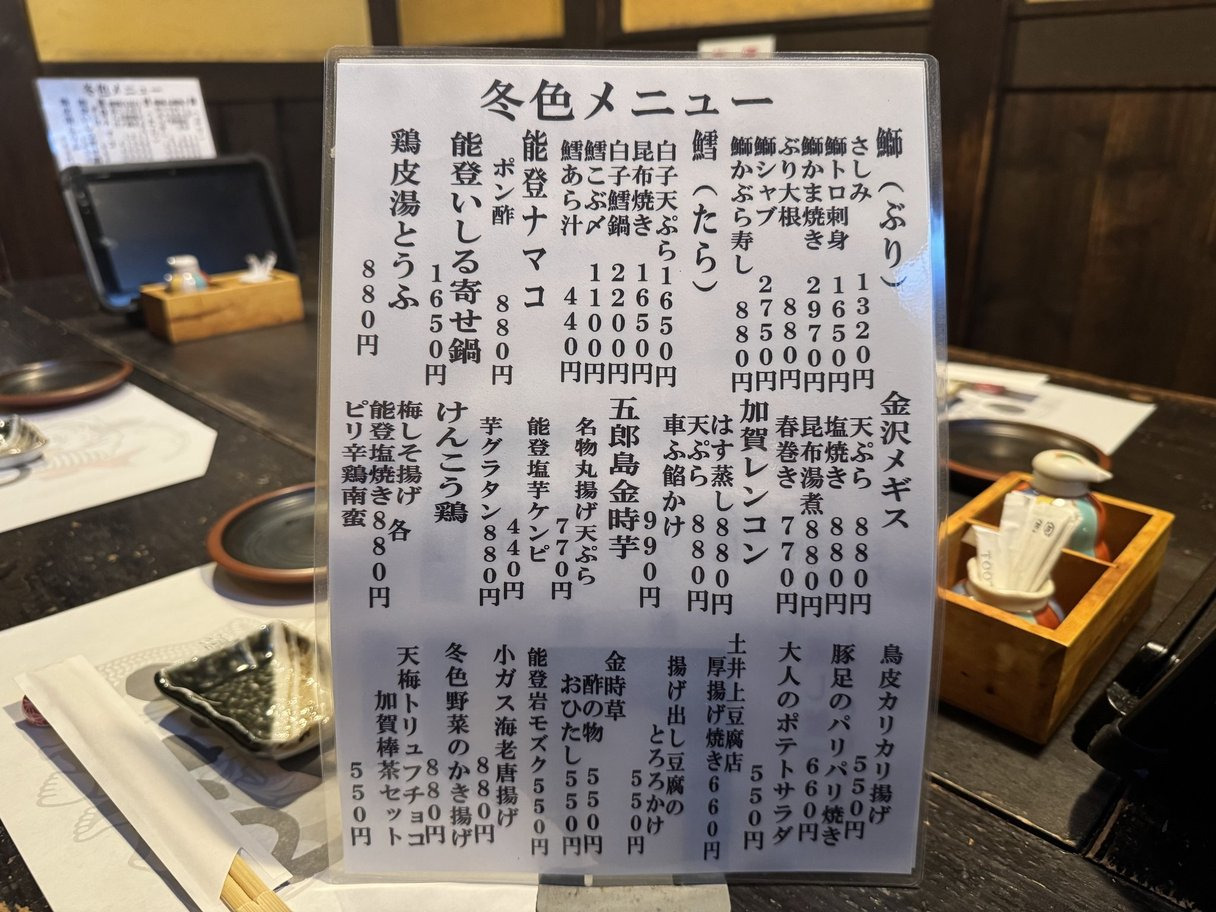 冬色メニュー
鰤(ぶり)
さしみ 1320円
鰤トロ刺身 1650円
鰤かま焼き 2970円
ぶり大根 880円
鰤シャブ 2750円
鰤かぶら寿し 880円
鱈(たら)
白子天ぷら1650円
昆布焼き 1650円
白子鱈鍋 2200円
鱈こぶ〆 1100円
鱈あら汁 440円
能登ナマコ
ポン酢 880円
能登いしる寄せ鍋
1650円
鶏皮湯とうふ
880円
金沢メギス
天ぷら 880円
塩焼き 880円
昆布湯煮880円
春巻き 770円
加賀レンコン
はす蒸し880円
天ぷら 880円
車ふ餡かけ
990円
五郎島金時芋
名物丸揚げ天ぷら
770円
能登塩芋ケンピ
440円
芋グラタン880円
けんこう鶏
梅しそ揚げ 各
能登塩焼き880円
ピリ辛鶏南蛮
鳥皮カリカリ揚げ
550円
豚足のパリパリ焼き
660円
大人のポテトサラダ
550円
土井上豆腐店
厚揚げ焼き660円
揚げ出し豆腐の
とろろかけ
550円
金時草
酢の物 550円
おひたし550円
能登岩モズク550円
小ガス海老唐揚げ
880円
冬色野菜のかき揚げ
880円
天梅トリュフチョコ
加賀棒茶セット
550円
冬色メニュー